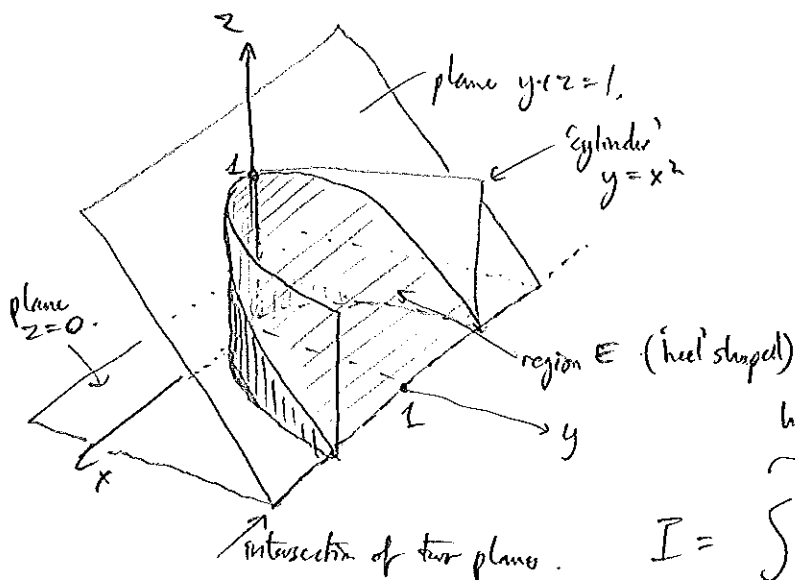 z
plane y+z=1.
'cylinder'
y=x²
1
plane
z=0.
region E ('heel' shaped)
1
y
x
intersection of two planes.
I = ∫